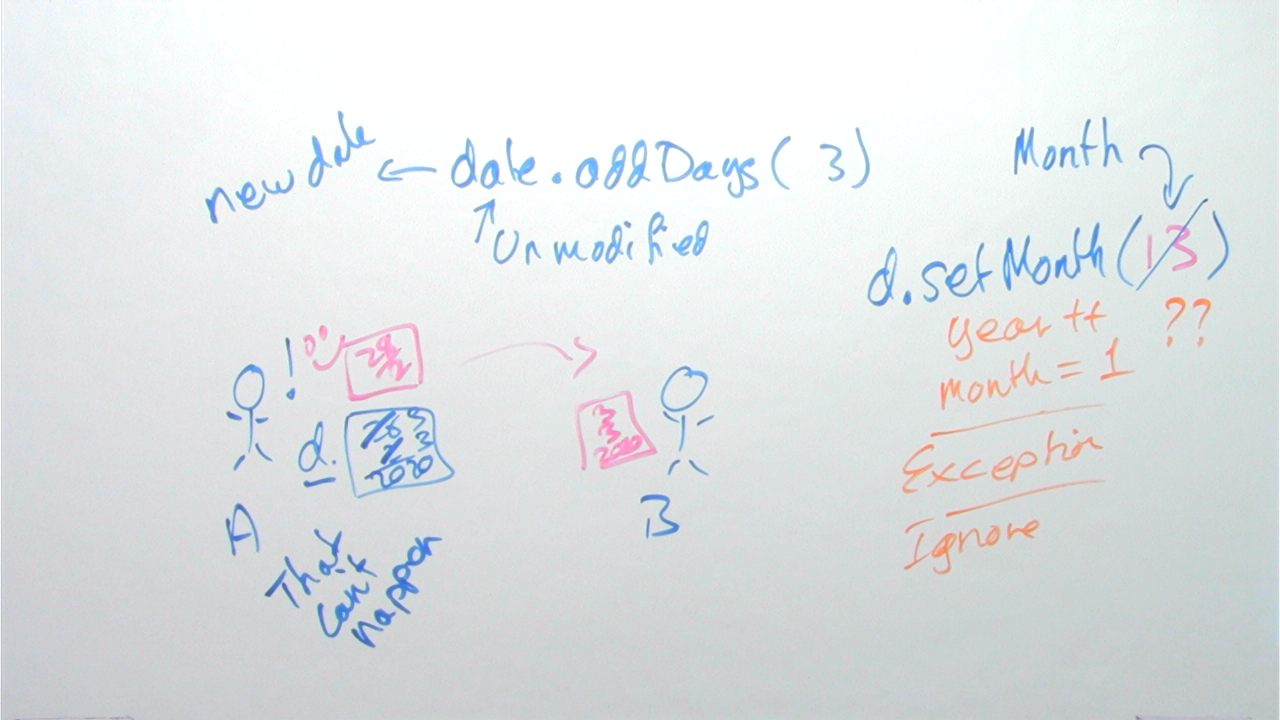 new date ← date.addDays( 3)
↑
Unmodified
Month
d.setMonth(13)
year ++ ??
month = 1
Exception
Ignore
!
d.
2020
3
3
2020
A
B
That
can't
happen